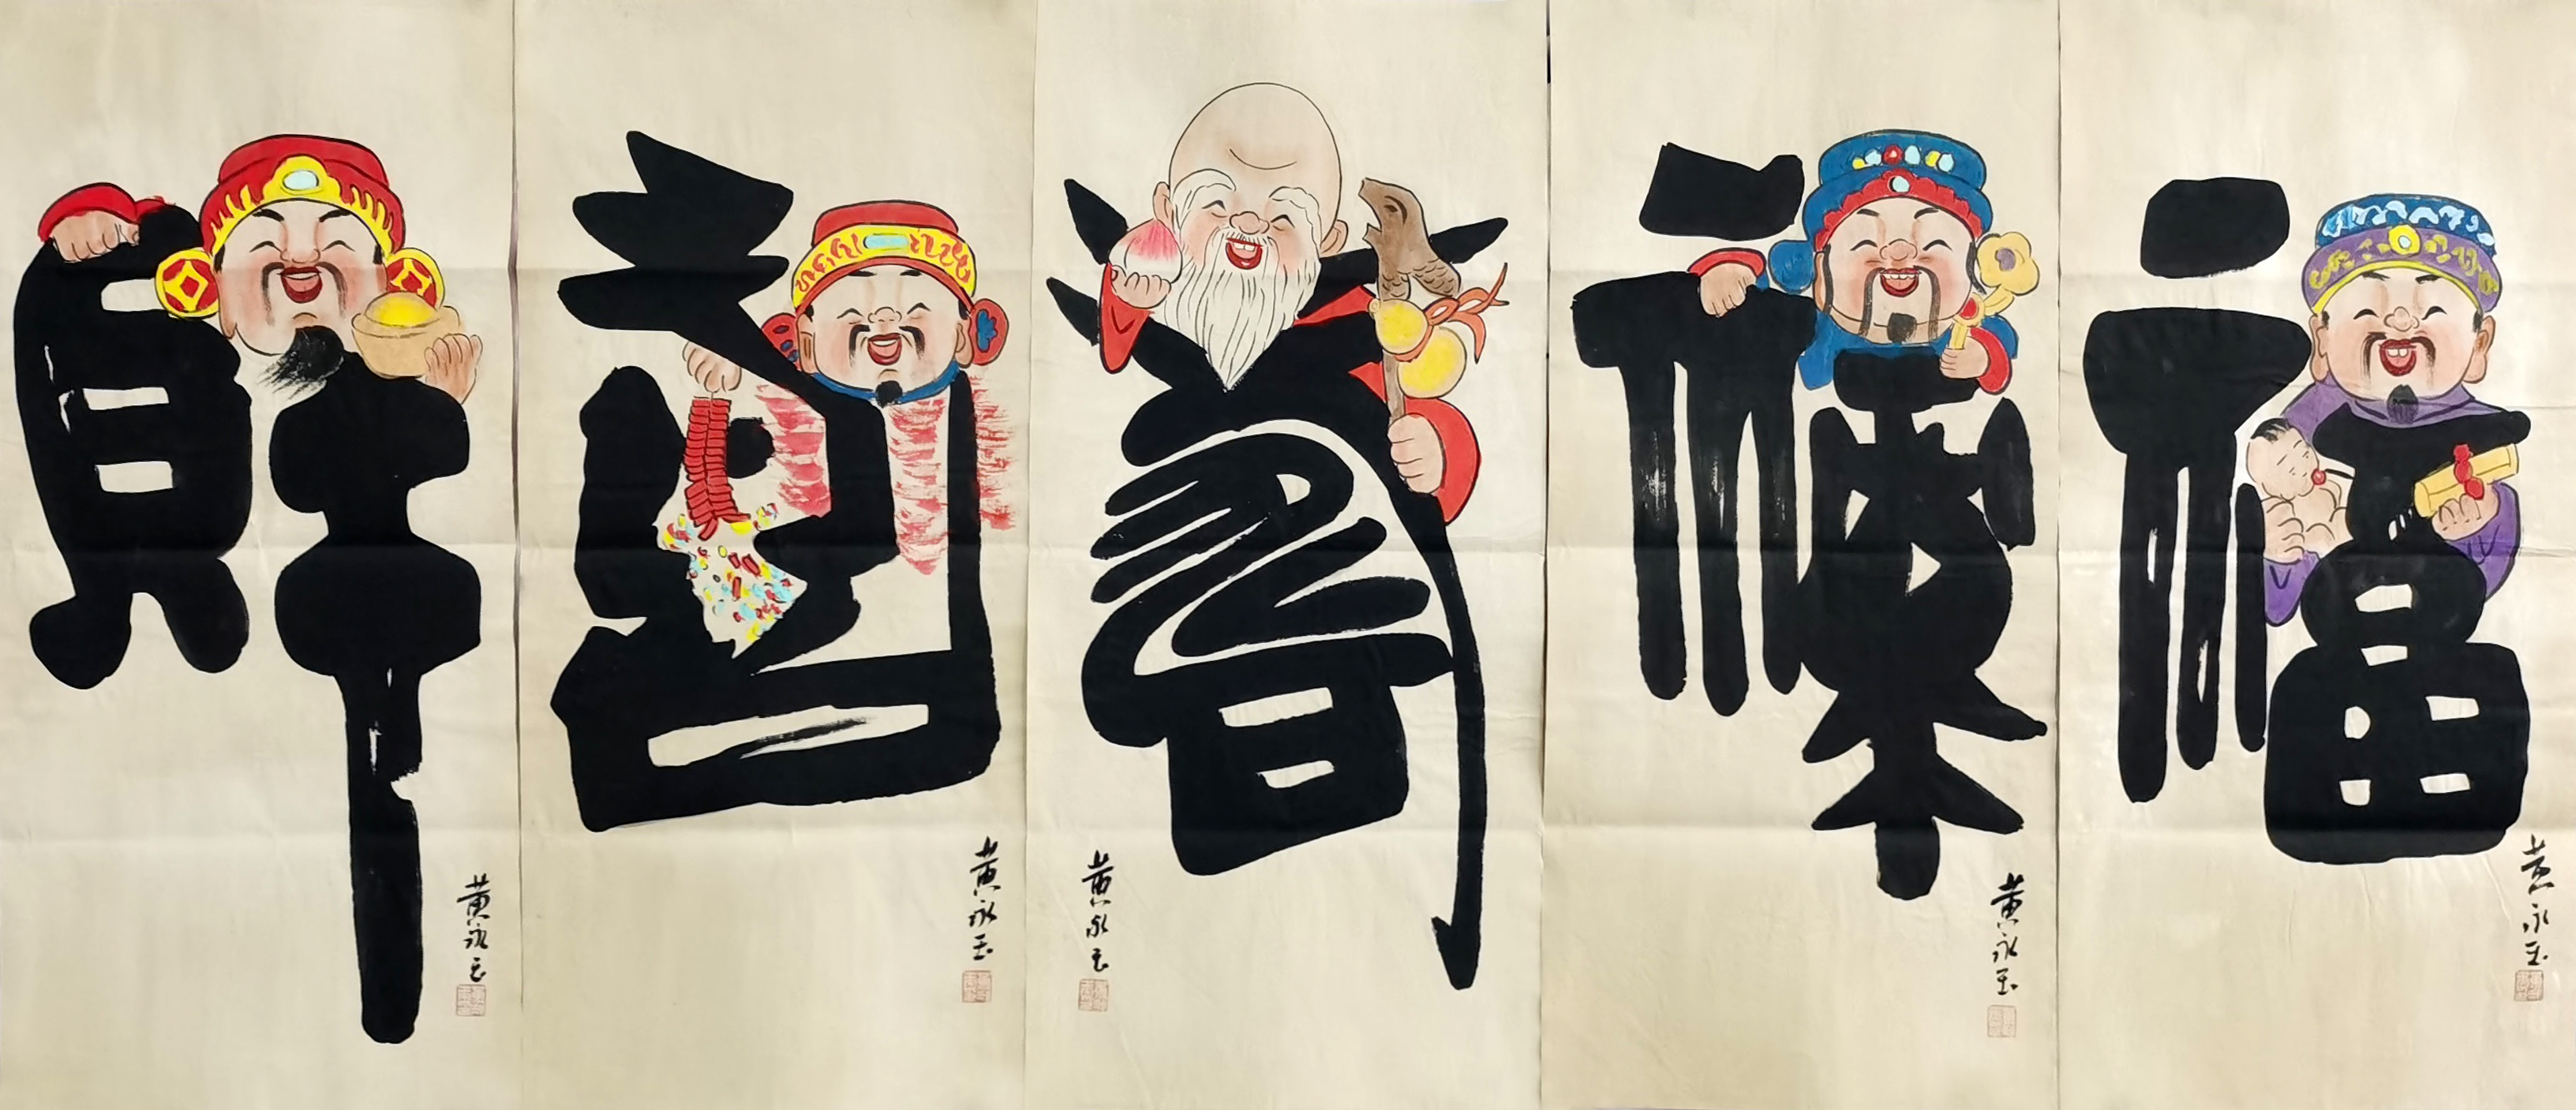 福
黄永玉
禄
黄永玉
寿
黄永玉
喜
黄永玉
財
黄永玉